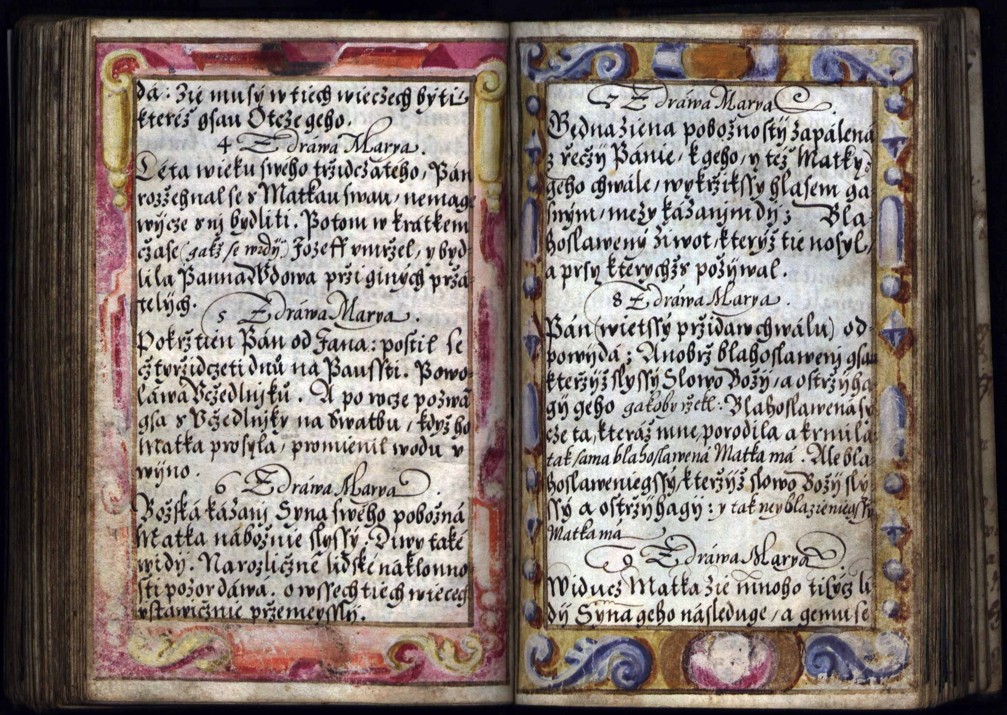 da: Zie musy w tiech wieczech byti
kterež gsau Otcže geho.
4 Zdráwa Marya.
Léta wieku swého tržidcžatého, Pán
rozžehnal se s Matkau swau, nemage
wýcze s nj bydliti. Potom w krátkém
čžase (gakž se wždy) Jozeff vmržel, y byd
lila Panna Wdowa prži giných pržá
telých.
5 Zdráwa Marya.
Pokržtien Pán od Jana: postil se
čžtyržidczeti dnů na Paussti. Powo
láwa Včžedlnjků. A po rocze pozwá
gsa s Včžedlnjky na Swatbu, když ho
Matka prosyla, promienil wodu v
wýno.
6 Zdráwa Marya
Božská kázanj Syna swého pobožná
Matka nábožnie slyssý. Diwy také
widý. Na rozličžné lidské náklonno
sti pozor dáwá. o wssech tiech wiecech
vstawičžnie pržemeyssý.
7 Zdráwa Marya
Gedna žiena pobožnostý zapálená
z ržečžy Pánie, k geho, y též Matky
geho chwále, wykržikssy hlasem ga
sným, mezy kázanjm dj: Bla
hoslawený žiwot, kterýž tie nosyl,
a prsy kterýchžs požýwal.
8 Zdráwa Marya.
Pán (wietssý pržidaw chwálu) od
powjdá: Anobrž blahoslawenj gsau
kteržýž slyssý Slowo Božý, a ostržýha
gý geho gakoby ržekl: Blahoslawená sy
cže ta, kteráž mne porodila a krmila
tak sama blahoslawená Matka má. Ale bla
hoslaweniegssý, kteržýž slowo Božý sly
ssý a ostržýhagý: y tak neyblazieniegssý
Matka má
9 Zdráwa Marya
Widucz Matka žie mnoho tisýcz li
dý Syna geho následuge, a genu se